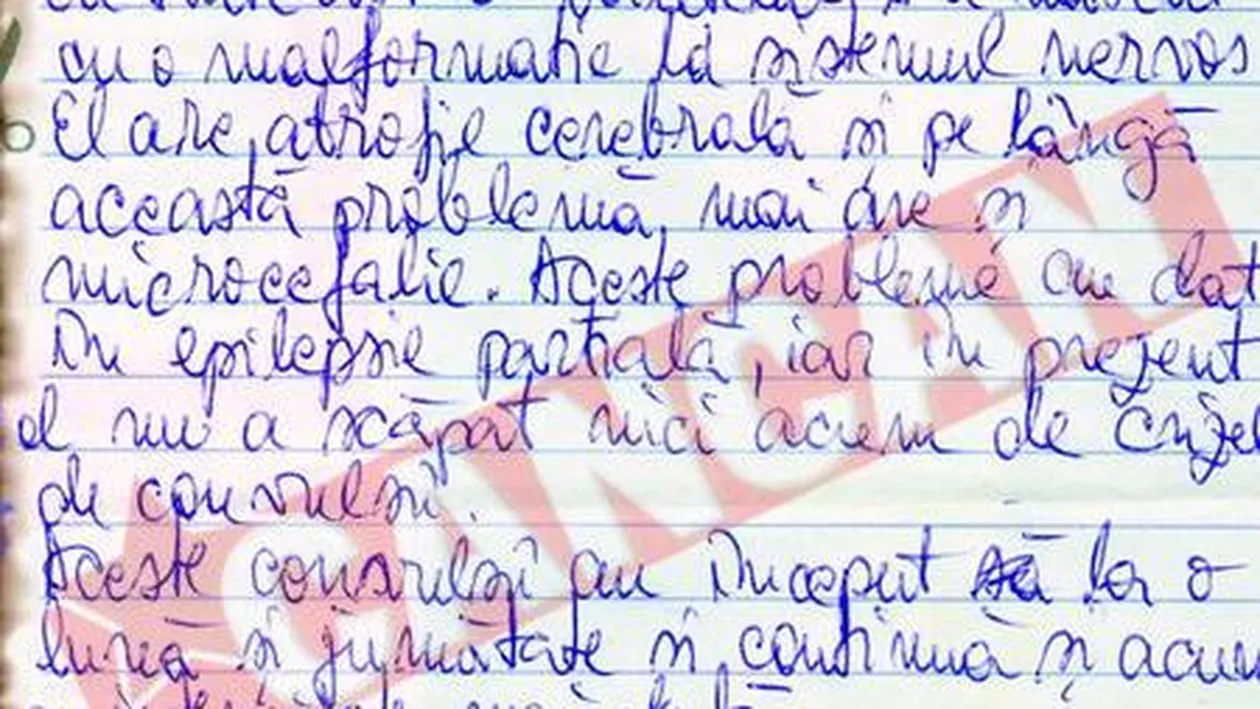 cu o malformatie la sistemul nervos
El are atrofie cerebrală și pe lângă
această problemă, mai are și
microcefalie. Aceste probleme au dat
în epilepsie parțială, iar în prezent
el nu a scăpat nici acum de crizel
de convulsii.
Aceste convulsii au început să la o
lună și jumătate și continuă și acum
CANCAN